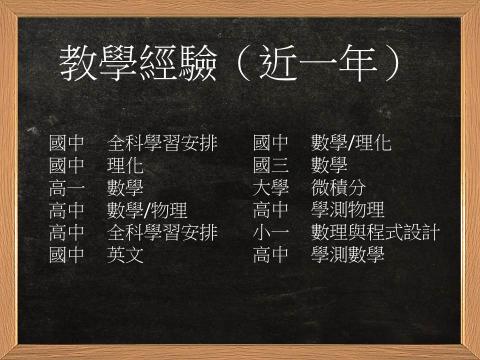 教學經驗（近一年）
國中 全科學習安排
國中 理化
高一 數學
高中 數學/物理
高中 全科學習安排
國中 英文
國中 數學/理化
國三 數學
大學 微積分
高中 學測物理
小一 數理與程式設計
高中 學測數學